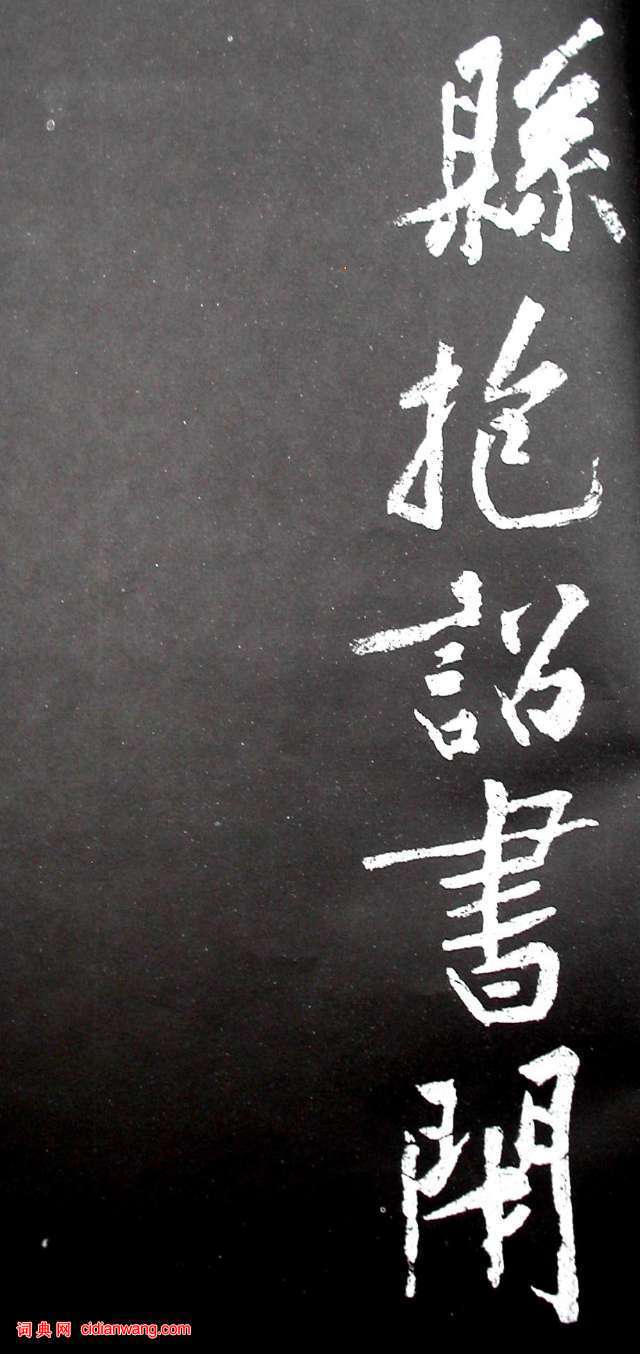 縣抱詔書閉
词典网 cidianwang.com